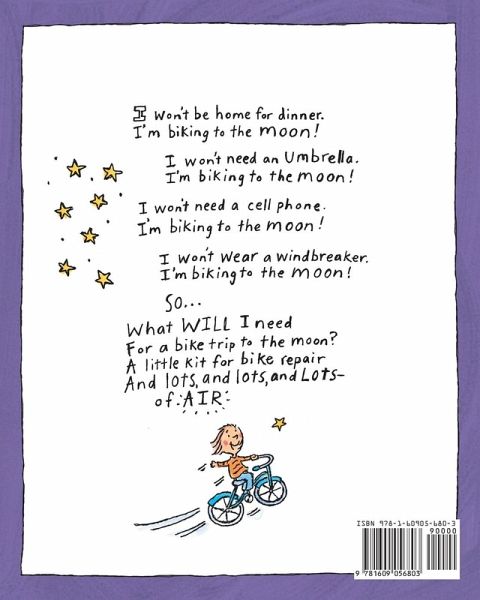 I won't be home for dinner.
I'm biking to the moon!
I won't need an Umbrella.
I'm biking to the moon!
I won't need a cell phone.
I'm biking to the moon!
I won't wear a windbreaker.
I'm biking to the moon!
So...
What WILL I need
For a bike trip to the moon?
A little kit for bike repair
And lots, and lots, and Lots-
of AIR
ISBN 978-1-60905-680-3
90000
9 781609 056803